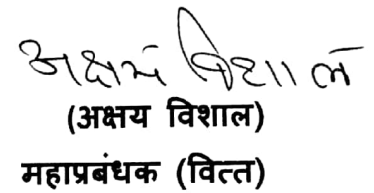 अक्षय विशाल
(अक्षय विशाल)
महाप्रबंधक (वित्त)